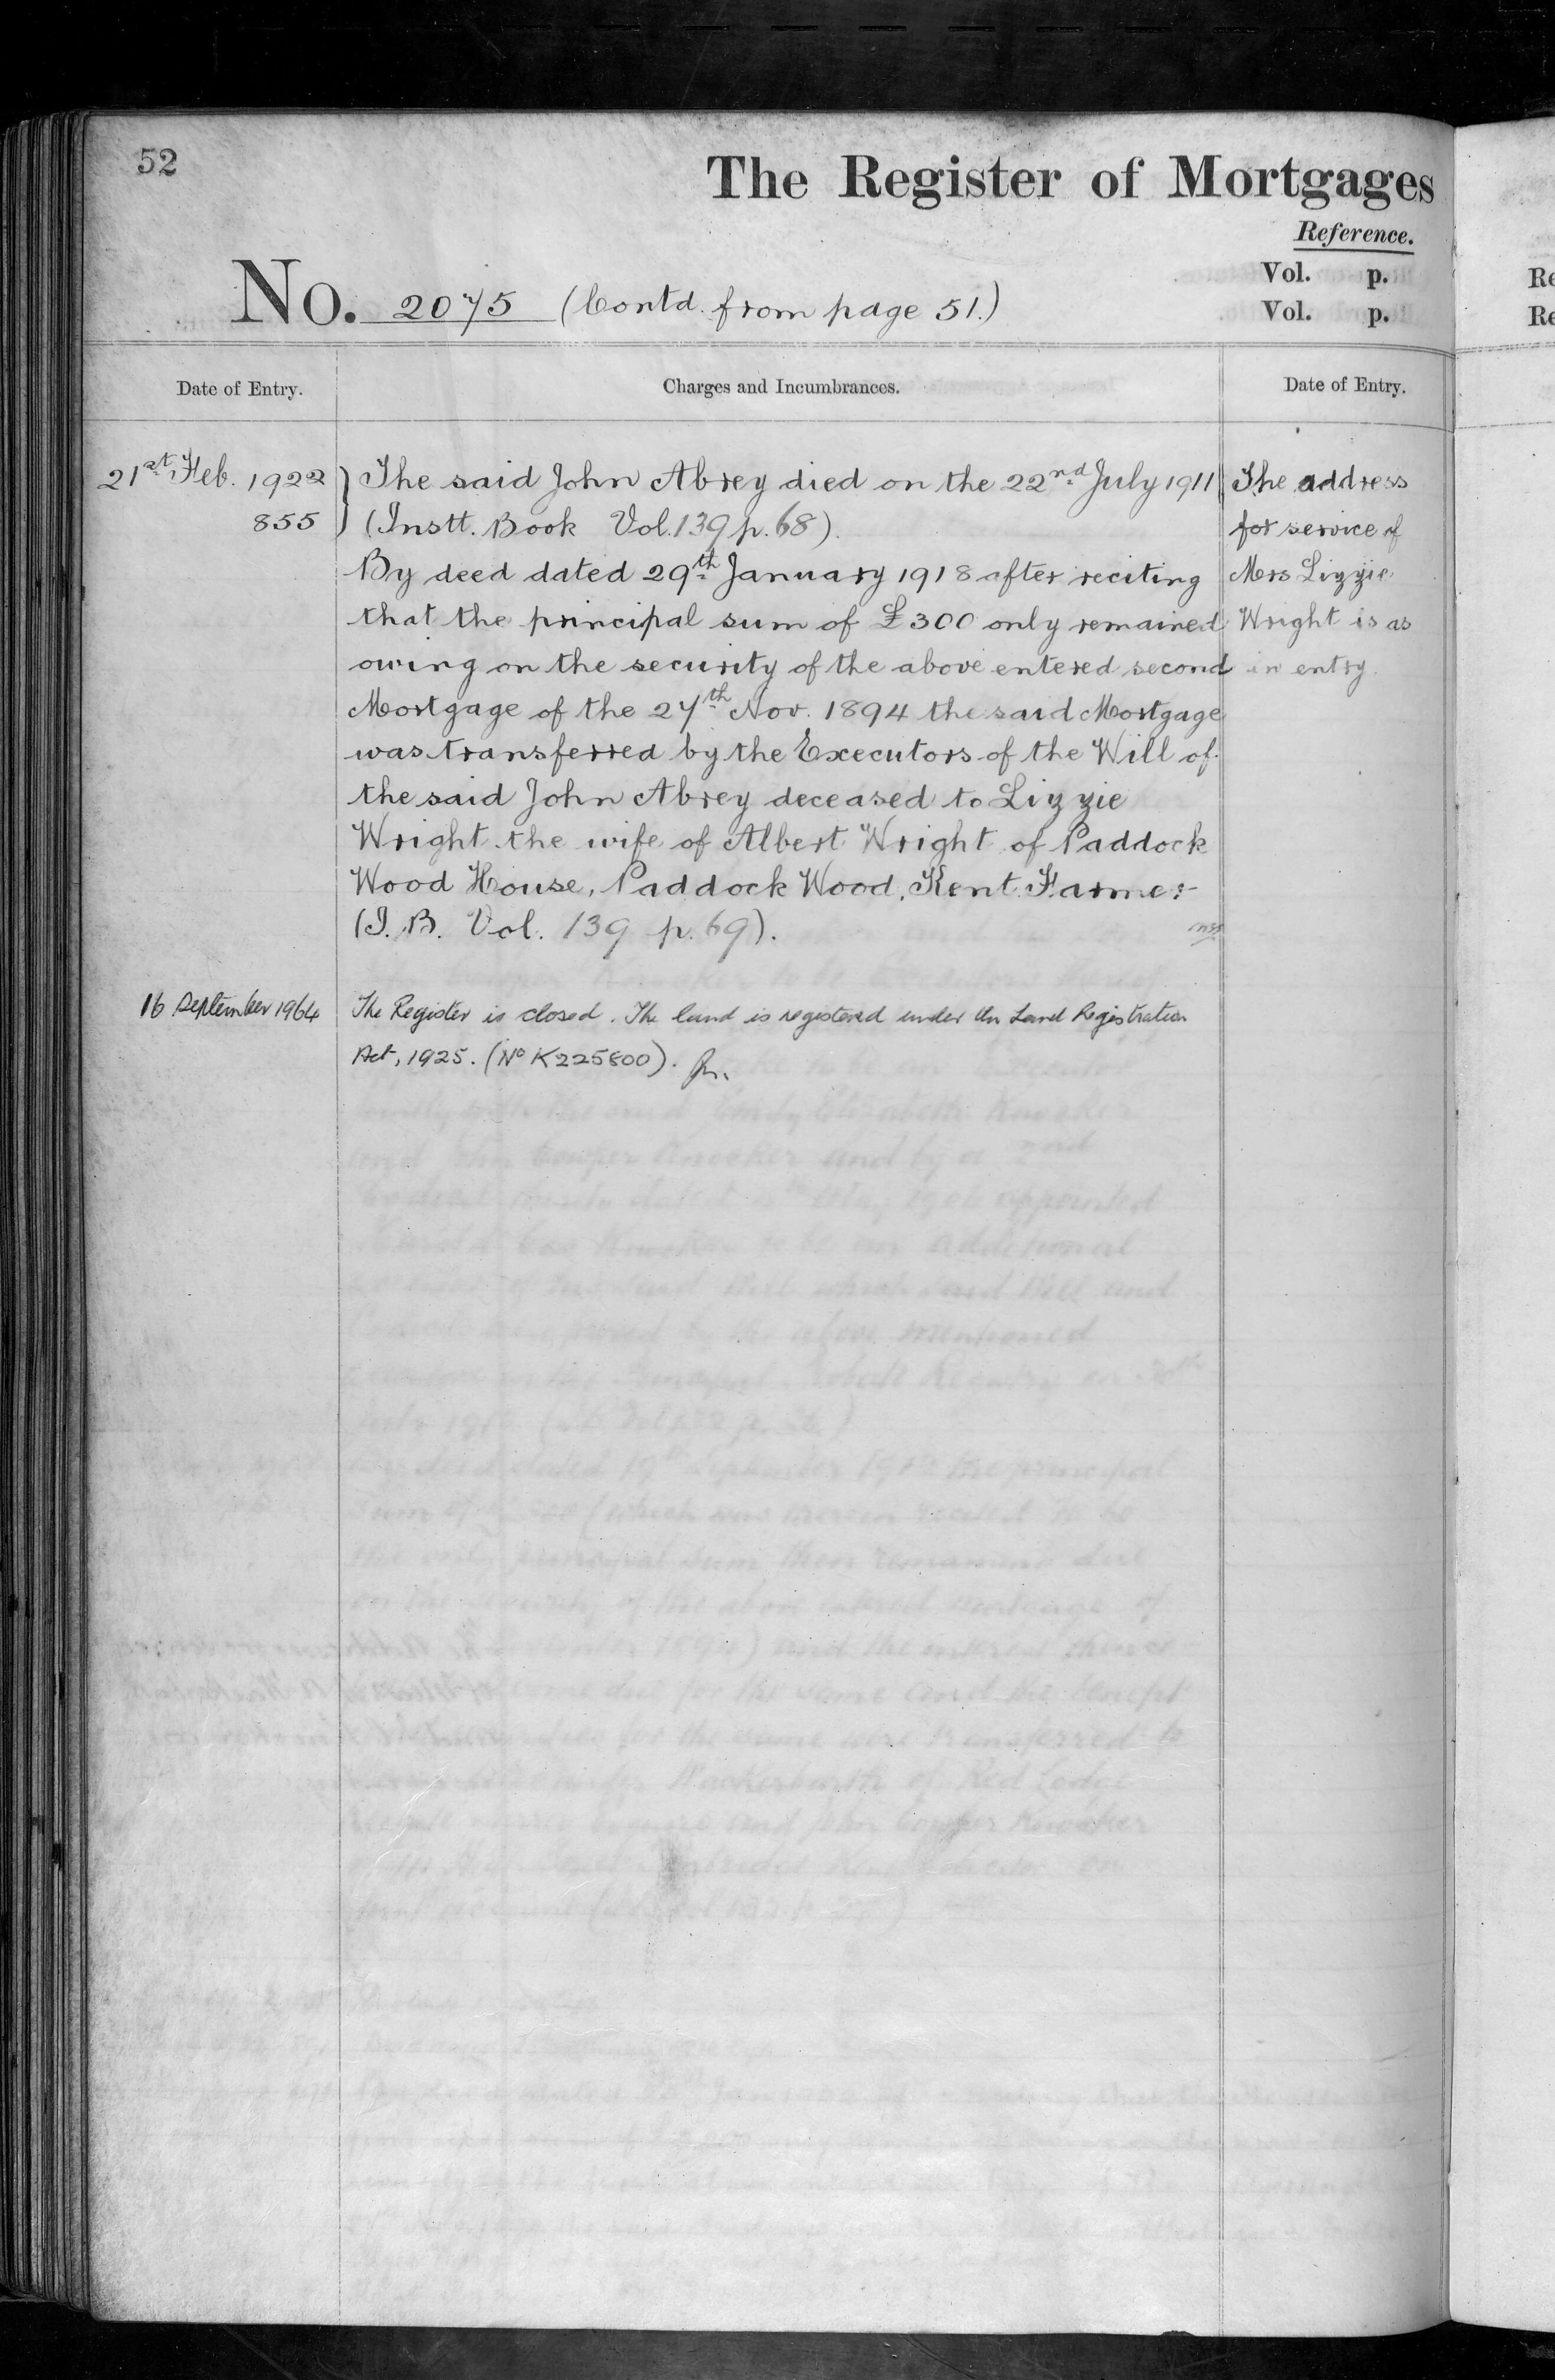 52
The Register of Mortgages
Reference.
Vol. p.
Vol. p.
No. 2075 (Contd. from page 51.)
Date of Entry.
Charges and Incumbrances.
Date of Entry.
21st Feb. 1922
855
The said John Abrey died on the 22nd July 1911
(Instt. Book Vol. 139 p. 68).
By deed dated 29th January 1918 after reciting
that the principal sum of £300 only remained
owing on the security of the above entered second
Mortgage of the 27th Nov. 1894 the said Mortgage
was transferred by the Executors of the Will of
the said John Abrey deceased to Lizzie
Wright the wife of Albert Wright of Paddock
Wood House, Paddock Wood, Kent. Farmer
(I.B. Vol. 139 p. 69).
The address
for service of
Mrs Lizzie
Wright is as
in entry.
16 September 1964
The Register is closed. The land is registered under the Land Registration
Act, 1925. (No K225800).
Re
Re